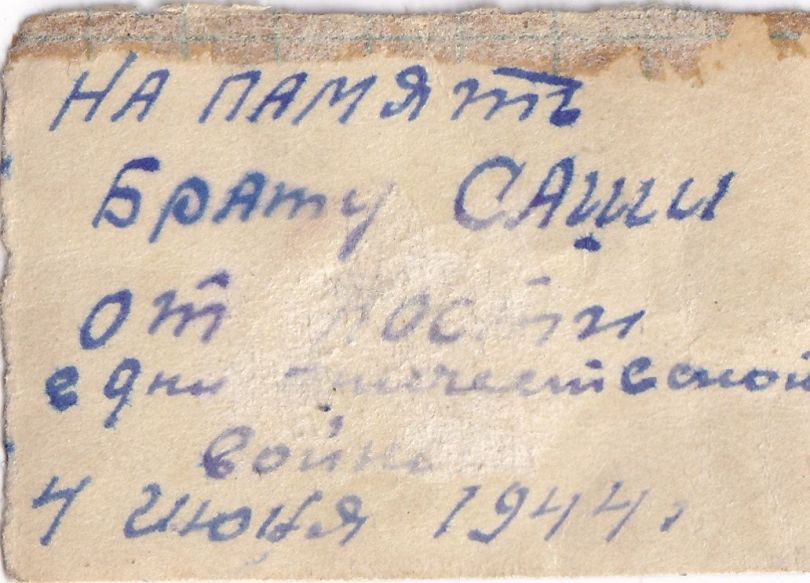 НА ПАМЯТЬ
Брату САШИ
от Кости
в дни отечественной
войны
4 июня 1944.